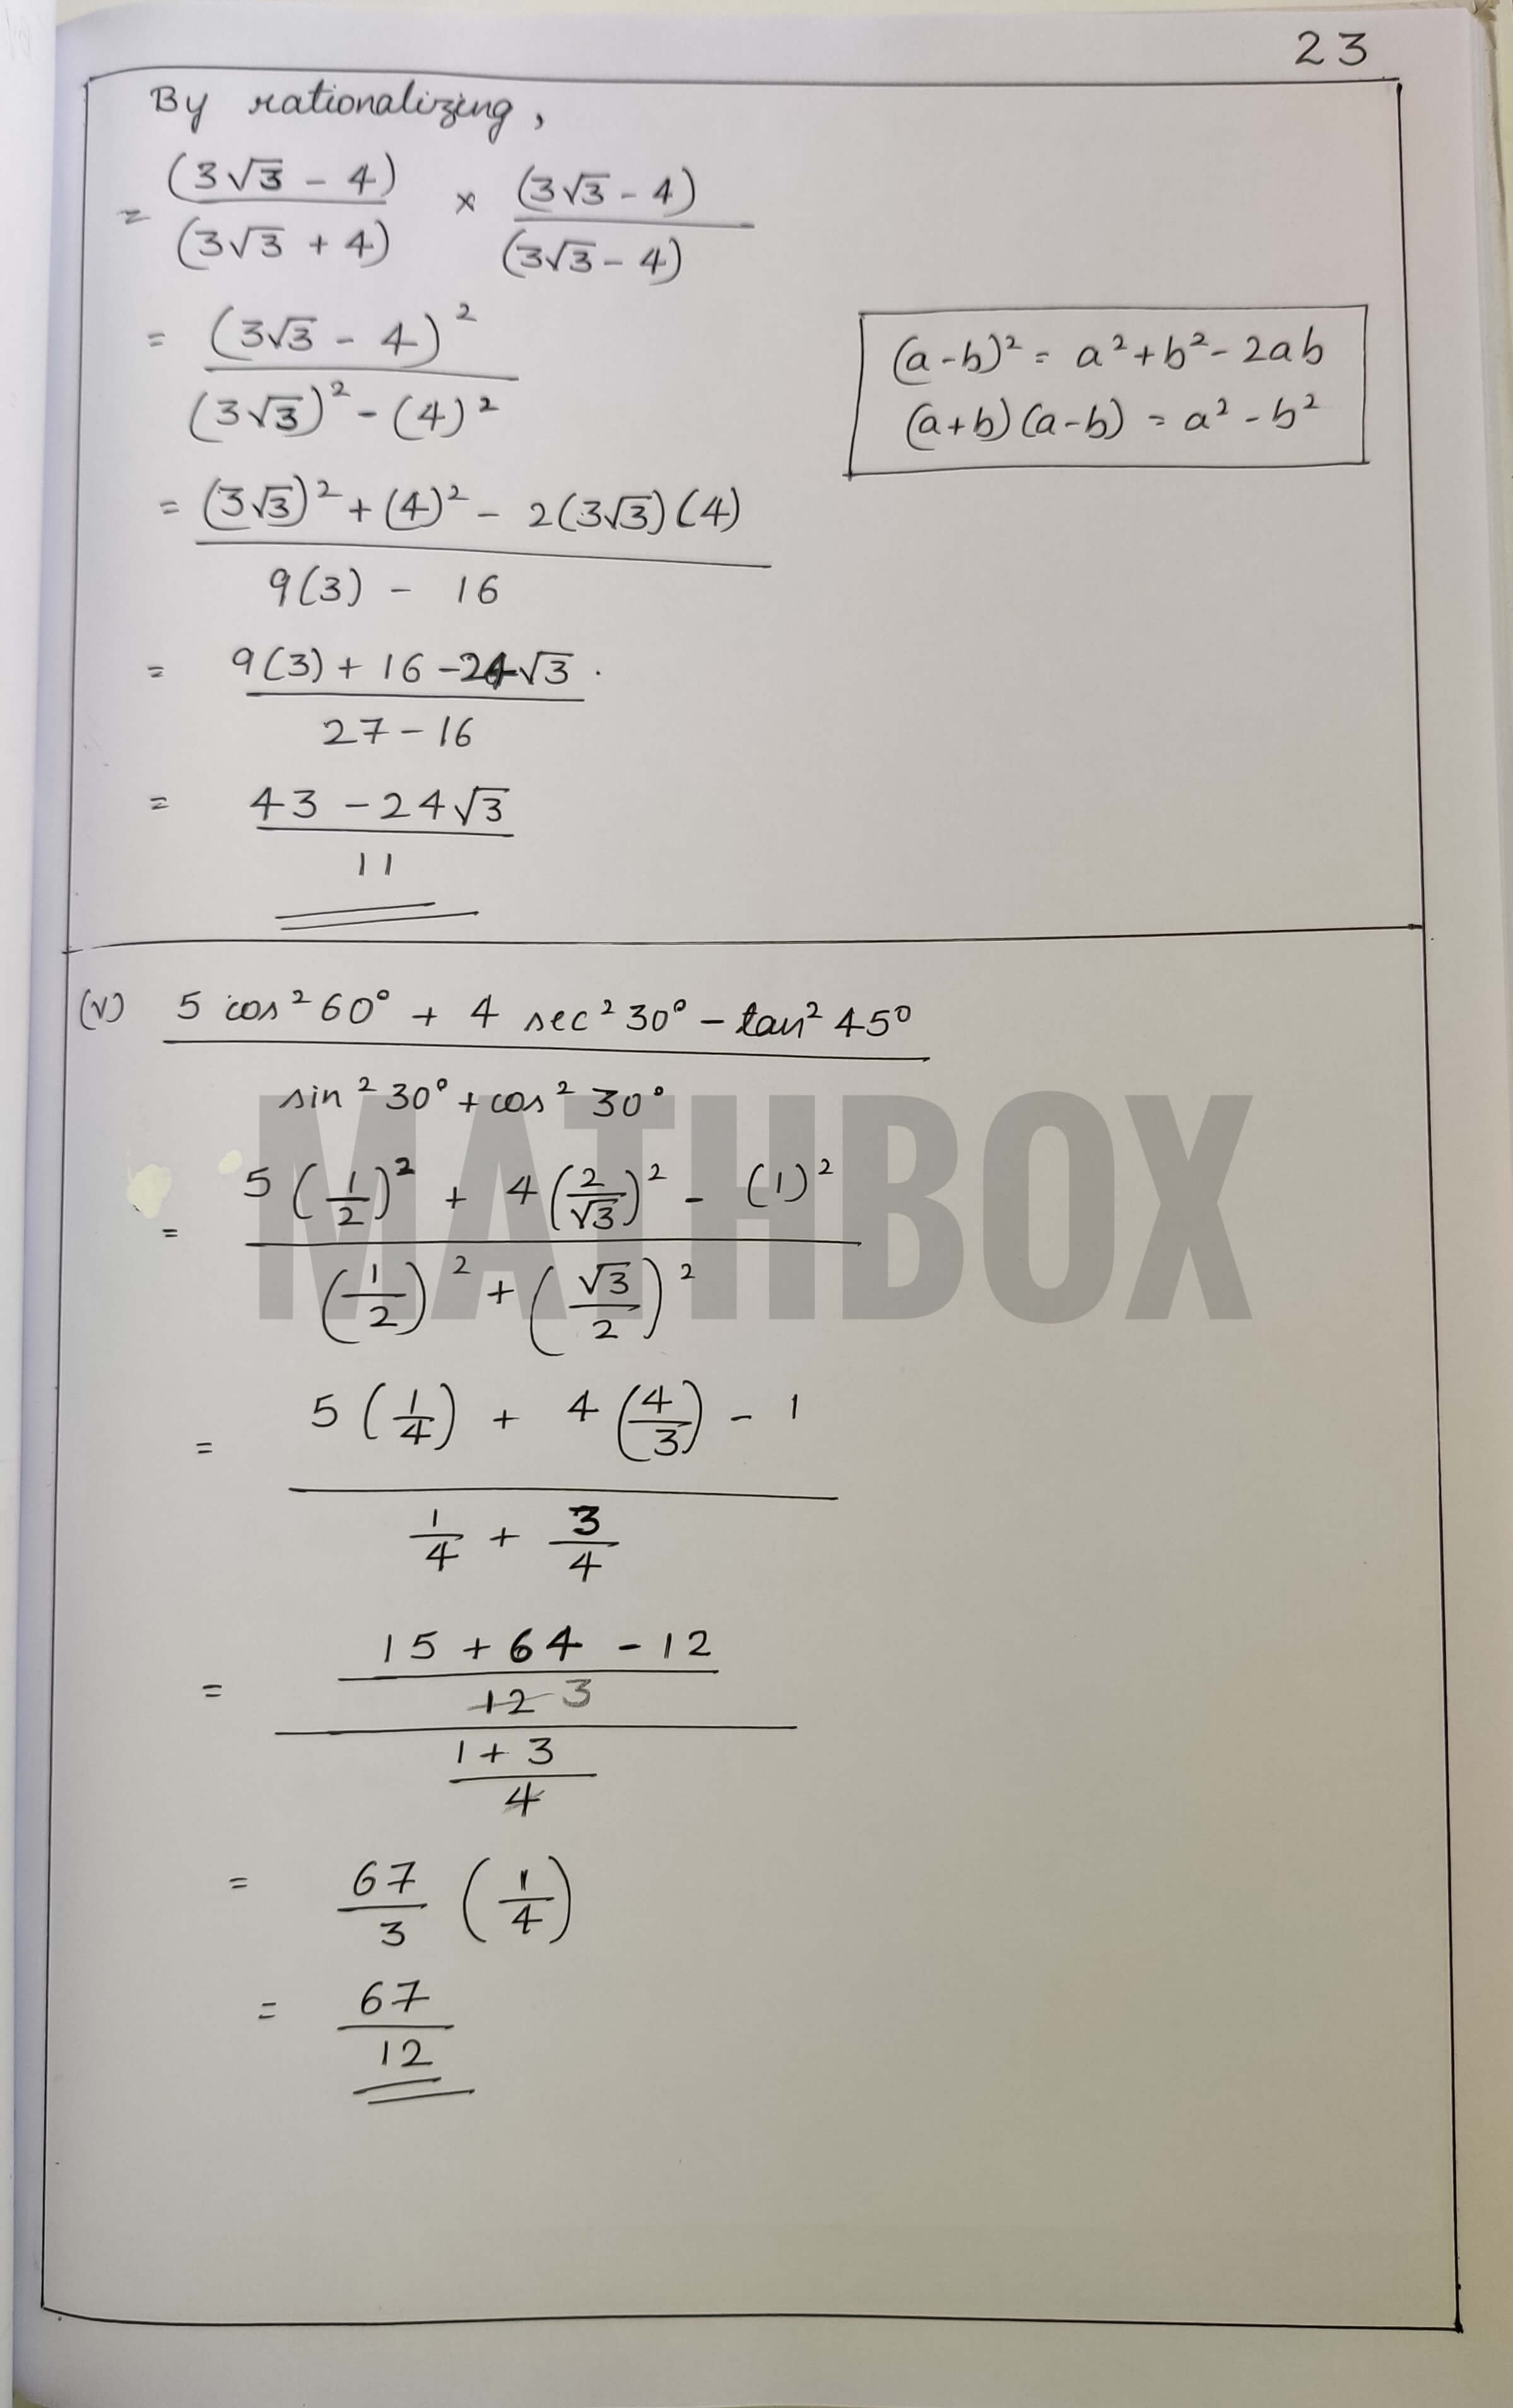 23
By rationalizing,
= (3√3 - 4) / (3√3 + 4) × (3√3 - 4) / (3√3 - 4)
= (3√3 - 4)² / (3√3)² - (4)²
(a-b)² = a² + b² - 2ab
(a+b)(a-b) = a² - b²
= (3√3)² + (4)² - 2(3√3)(4) / 9(3) - 16
= 9(3) + 16 - 24√3 / 27 - 16
= 43 - 24√3 / 11
(v) 5 cos² 60° + 4 sec² 30° - tan² 45° / sin² 30° + cos² 30°
MATHBOX
= 5 (1/2)² + 4 (2/√3)² - (1)² / (1/2)² + (√3/2)²
= 5 (1/4) + 4 (4/3) - 1 / 1/4 + 3/4
= 15 + 64 - 12 / 12 3 / 1 + 3 / 4
= 67/3 (1/4)
= 67/12